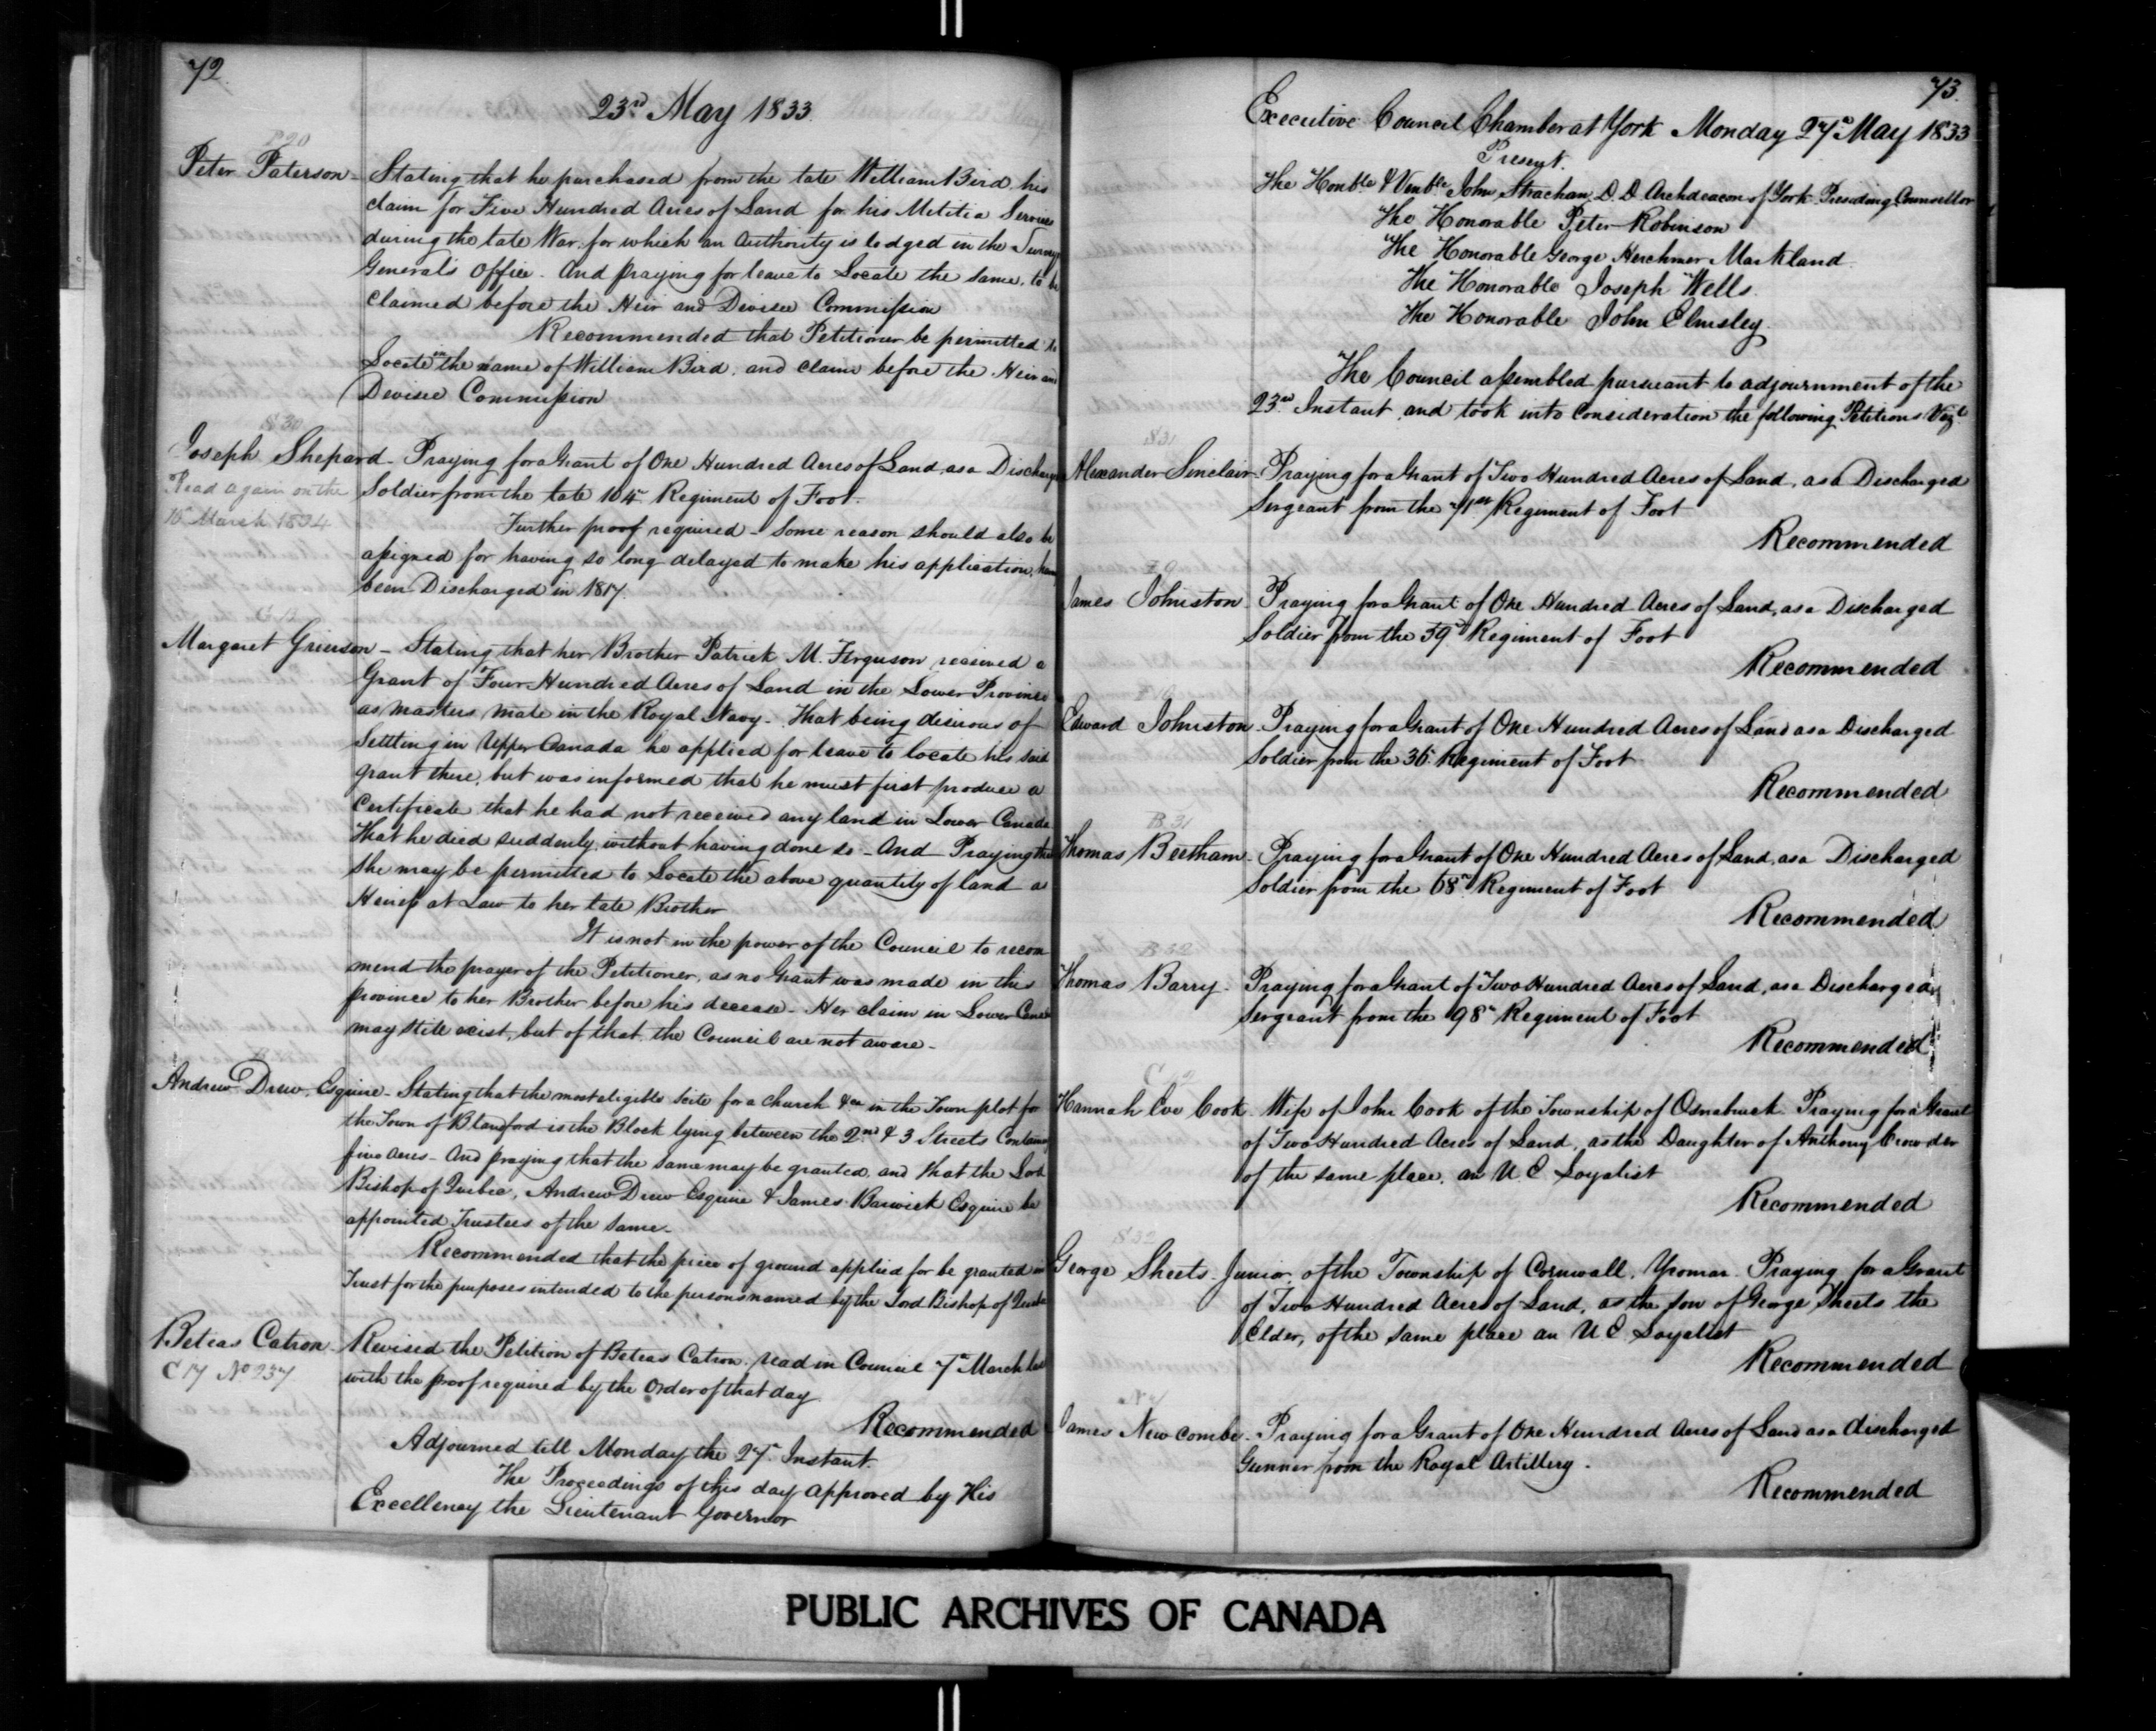 72
23rd May 1833.
P20
Peter Paterson - Stating that he purchased from the late William Bird his
claim for Five Hundred Acres of Land for his Militia Services
during the late War, for which an Authority is lodged in the Survey
General's Office. And praying for leave to Locate the same, to be
claimed before the Heir and Devisee Commission
Recommended that Petitioner be permitted to
Locate in the name of William Bird, and claim before the Heir and
Devisee Commission
S 30
Joseph Shepard - Praying for a Grant of One Hundred Acres of Land, as a Discharged
Read again on the Soldier from the late 104th Regiment of Foot.
March 1834
Further proof required - Some reason should also be
assigned for having so long delayed to make his application,
been Discharged in 1817.
Margaret Grierson - Stating that her Brother Patrick M. Ferguson received a
Grant of Four Hundred Acres of Land in the Lower Province
as Masters Mate in the Royal Navy - That being desirous of
Settling in Upper Canada he applied for leave to locate his said
grant there, but was informed that he must first produce a
Certificate that he had not received any land in Lower Canada
That he died suddenly, without having done so - And Praying that
She may be permitted to Locate the above quantity of land a
Heiress at Law to her late Brother
It is not in the power of the Council to recom
mend the prayer of the Petitioner, as no Grant was made in this
province to her Brother before his decease - Her claim in Lower Canada
may still exist, but of that, the Council are not aware -
Andrew Drew, Esquire - Stating that the most eligible Scite for a Church &ca in the Town plot for
the Town of Blandford is the Block lying between the 2nd & 3 Streets Containing
five acres - And praying that the same may be granted, and that the Lord
Bishop of Quebec, Andrew Drew Esquire & James Barwick Esquire be
appointed Trustees of the same -
Recommended that the piece of ground applied for be granted in
Trust for the purposes intended to the persons named by the Lord Bishop of Quebec
Beteas Catron - Revised the Petition of Beteas Catron, read in Council 7th March last
C 17 No 237 with the proof required by the Order of that day
Recommended
Adjourned till Monday the 27th Instant.
The Proceedings of this day approved by His
Excellency the Lieutenant Governor
73.
Executive Council Chamber at York Monday 27th May 1833
Present.
The Honble & Venble John Strachan, D. D. Archdeacon of York Presiding Counsellor
The Honorable Peter Robinson
The Honorable George Herchmer Markland
The Honorable Joseph Wells.
The Honorable John Elmsley.
The Council assembled pursuant to adjournment of the
23rd Instant, and took into consideration the following Petitions Vizt
S 31
Alexander Sinclair - Praying for a Grant of Two Hundred Acres of Land, as a Discharged
Sergeant from the 71st Regiment of Foot
Recommended
James Johnston - Praying for a Grant of One Hundred Acres of Land, as a Discharged
Soldier from the 39th Regiment of Foot
Recommended
Edward Johnston - Praying for a Grant of One Hundred Acres of Land as a Discharged
Soldier from the 36th Regiment of Foot
Recommended
B 31
Thomas Beetham - Praying for a Grant of One Hundred Acres of Land, as a Discharged
Soldier from the 68th Regiment of Foot
Recommended
B 32
Thomas Barry - Praying for a Grant of Two Hundred Acres of Land, as a Discharged
Sergeant from the 98th Regiment of Foot
Recommended
Hannah Eve Cook - Wife of John Cook of the Township of Osnabruck Praying for a Grant
of Two Hundred Acres of Land, as the Daughter of Anthony Crowder
of the same place, an U E Loyalist
Recommended
S 32
George Sheets Junior, of the Township of Cornwall, Yeoman Praying for a Grant
of Two Hundred Acres of Land, as the son of George Sheets the
Elder, of the same place an U E Loyalist
Recommended
James Newcombe - Praying for a Grant of One Hundred Acres of Land as a discharged
Gunner from the Royal Artillery.
Recommended
PUBLIC ARCHIVES OF CANADA